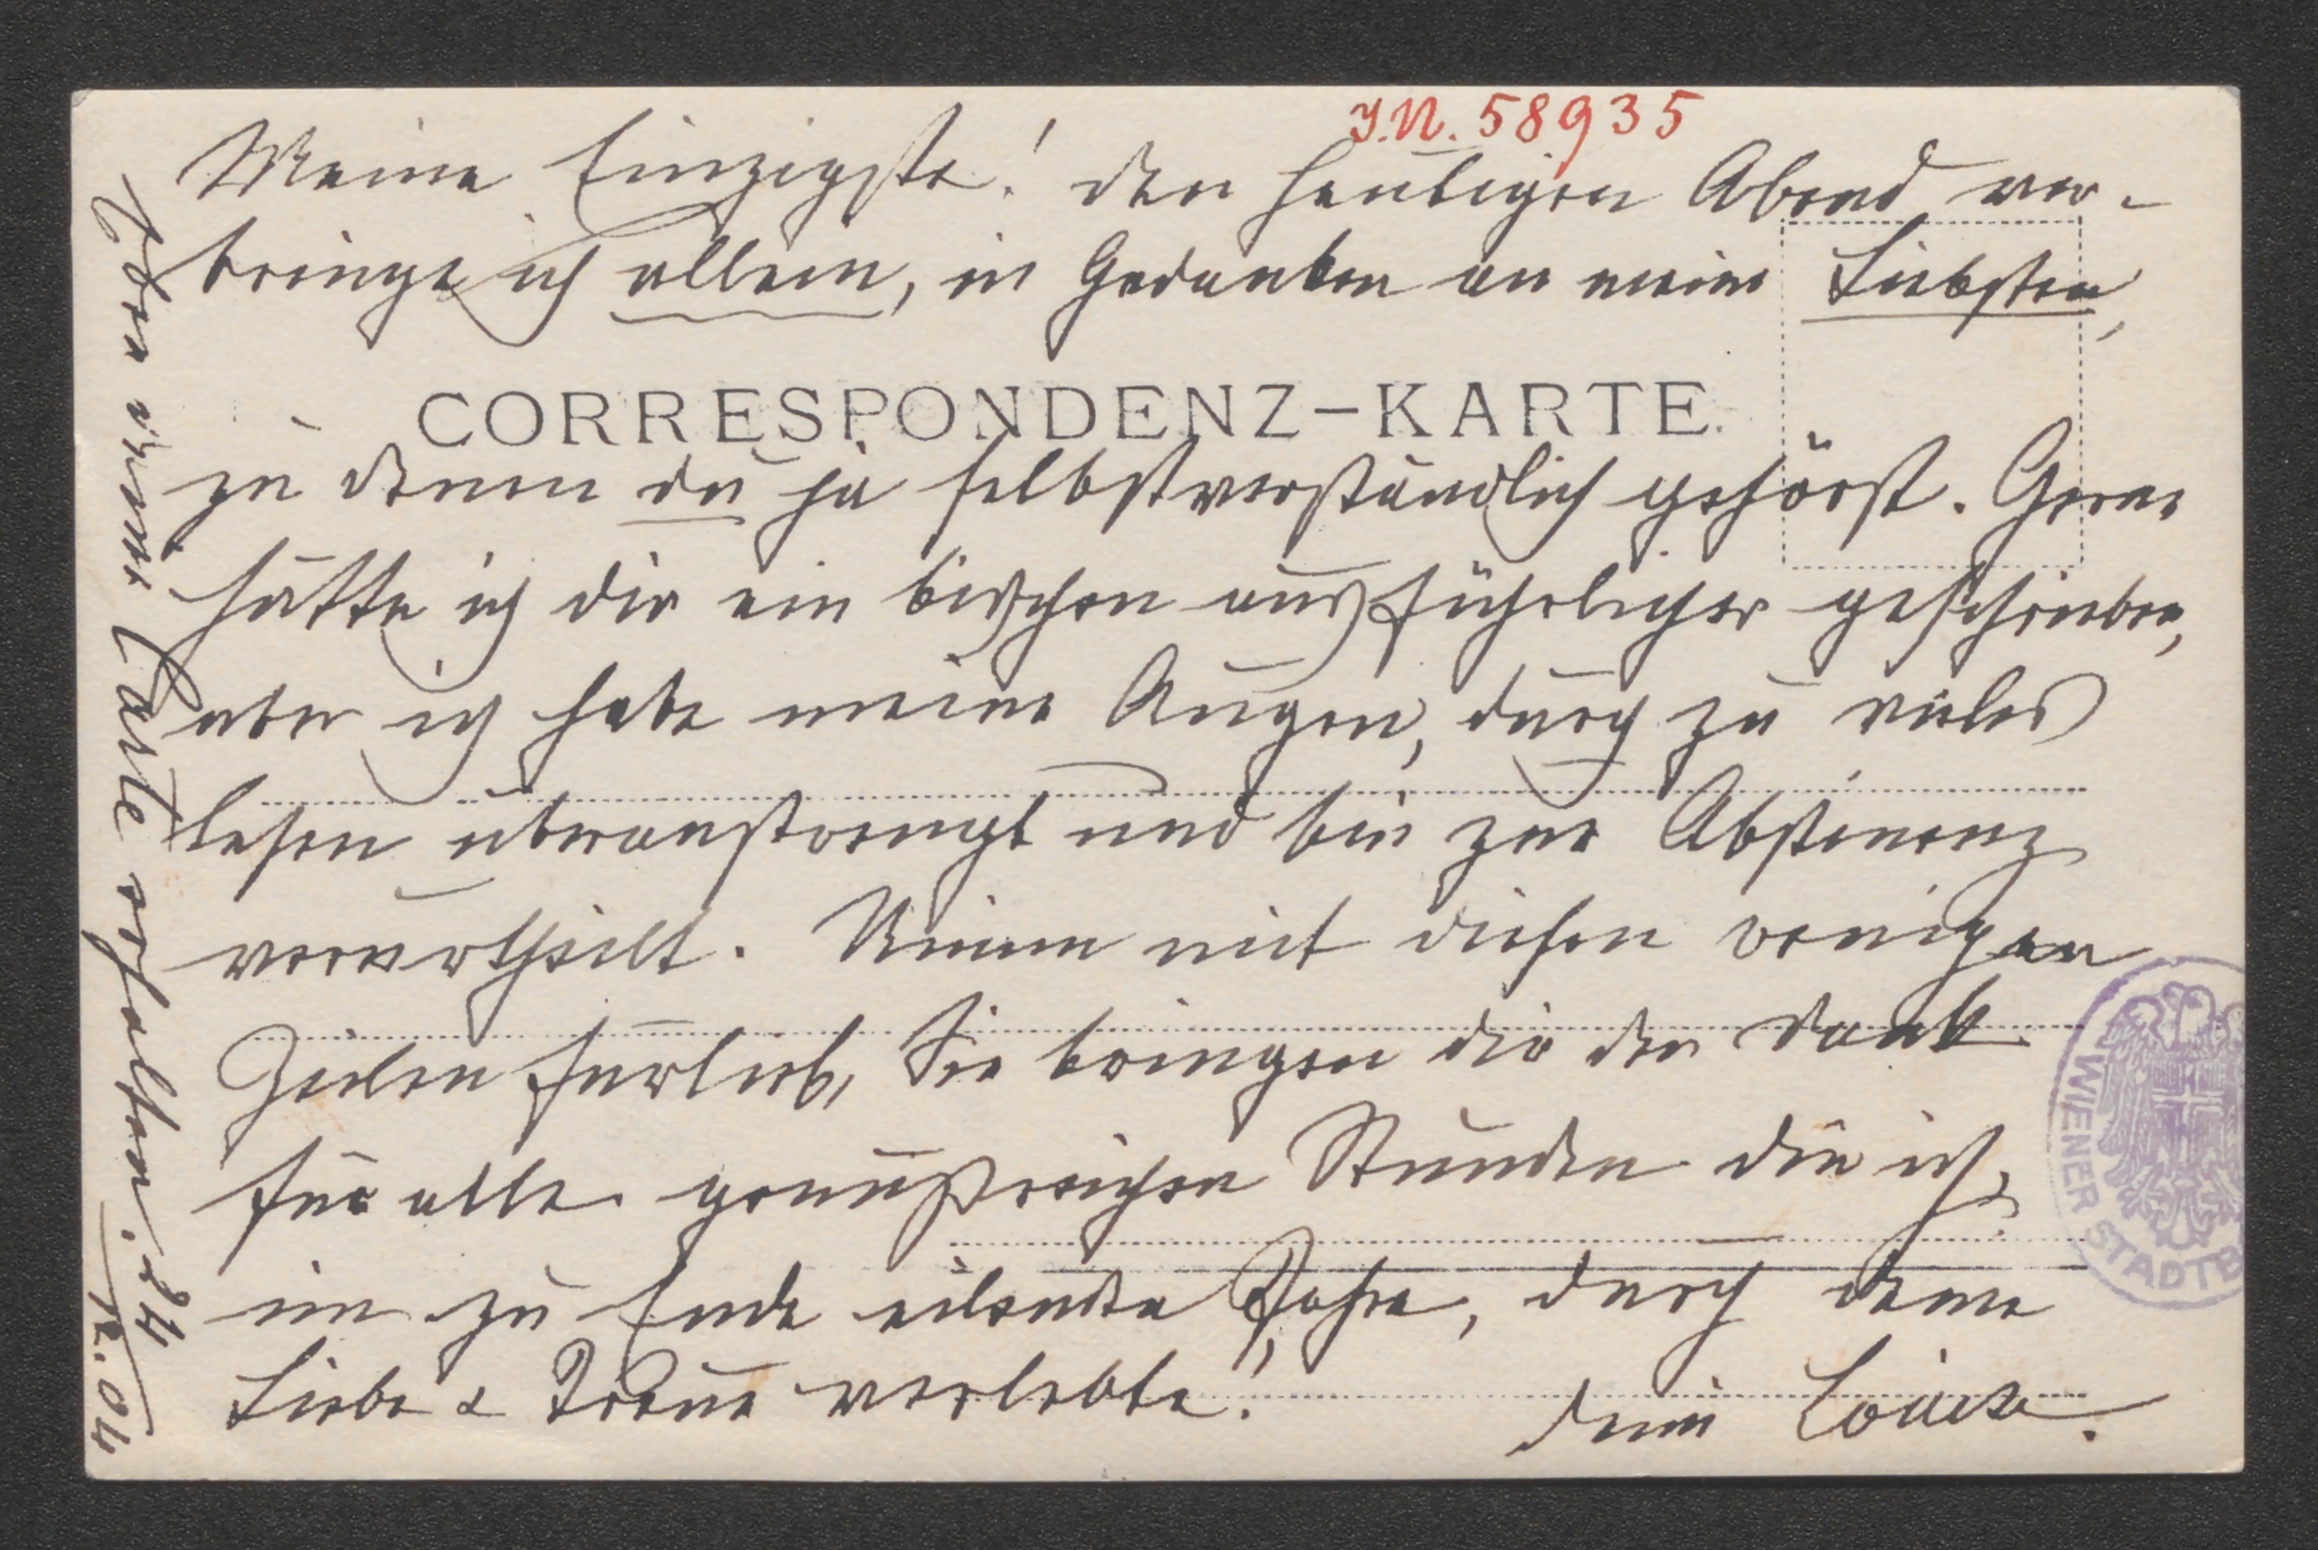 J.N. 58935
Meine Einzigste! den heutigen Abend ver-
bringe ich allein, in Gedanken an meine Liebsten,
CORRESPONDENZ-KARTE.
zu denen du ja selbstverständlich gehörst. Gerne
hätte ich dir ein bischen ausführlicher geschrieben,
aber ich habe meine Augen, durch zu vieles
lesen überanstrengt und bin zur Abstinenz
verurtheilt. Nimm mit diesen wenigen
Zeilen fürlieb, Sie bringen dir den Dank
für alle genußreichen Stunden die ich,
im zu Ende eilende Jahre, durch deine
Liebe & Treue verlebte!
dein Louise.
eben deine Carte erhalten. 24/12.04
WIENER STADTB